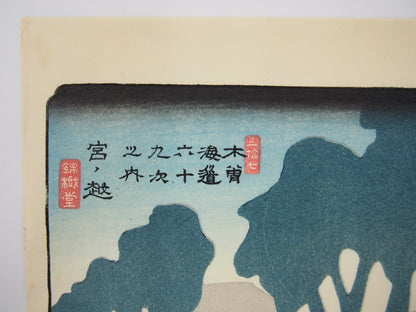 三拾七
木曽
海道
六十
九次
之内
宮ノ越
錦樹堂